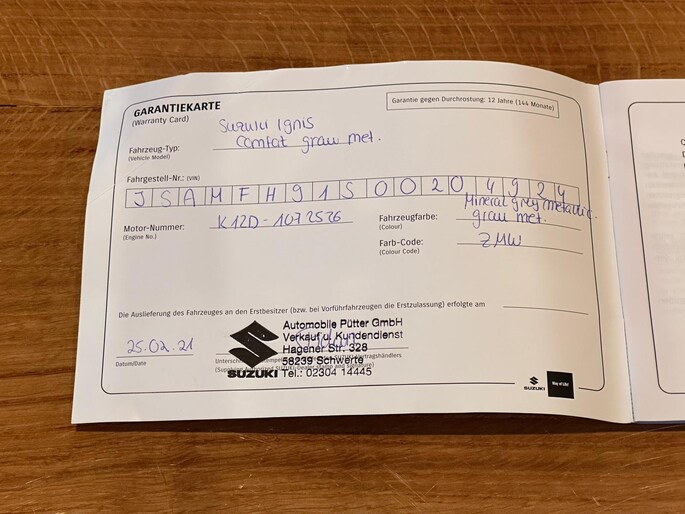 GARANTIEKARTE
(Warranty Card)
Garantie gegen Durchrostung: 12 Jahre (144 Monate)
Fahrzeug-Typ:
(Vehicle Model)
Suzuki Ignis
Comfort grau met.
Fahrgestell-Nr.: (VIN)
JSAMFH91S00204924
Motor-Nummer:
(Engine No.)
K12D-1072526
Fahrzeugfarbe:
(Colour)
Mineral grey metallic
grau met.
Farb-Code:
(Colour Code)
ZMW
Die Auslieferung des Fahrzeuges an den Erstbesitzer (bzw. bei Vorführfahrzeugen die Erstzulassung) erfolgte am
25.02.21
Datum/Date
Automobile Pütter GmbH
Verkauf u. Kundendienst
Hagener Str. 328
58239 Schwerte
SUZUKI Tel.: 02304 14445
SUZUKI
Way of Life!